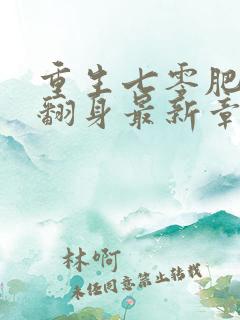 重生七零肥
翻身最新章
林啊
未经同意禁止转载